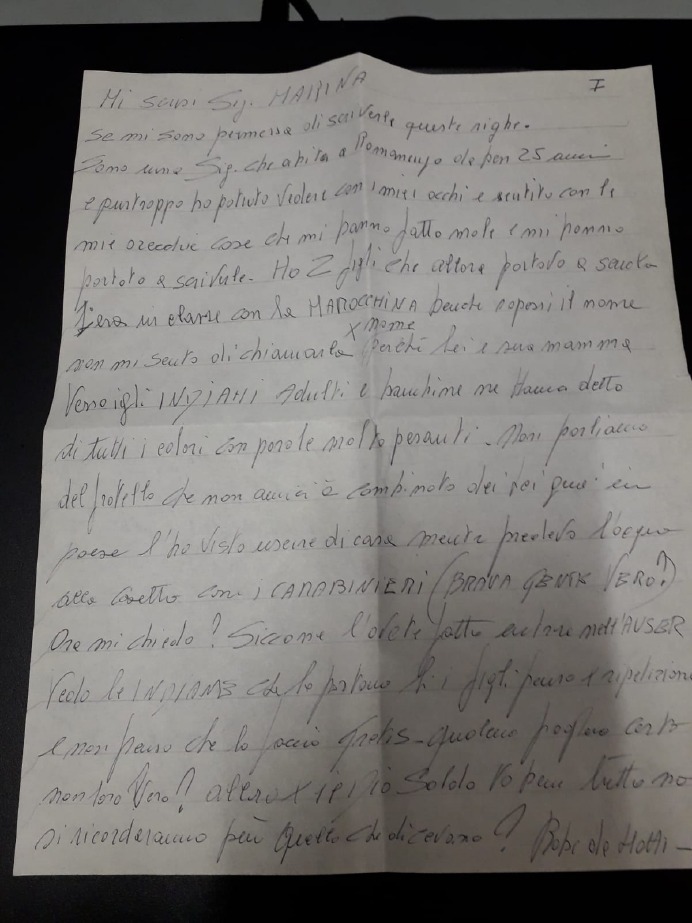 I
Mi scusi Sig. MARINA
se mi sono permessa di scriverle queste righe.
Sono una Sig. che abita a Romanengo da ben 25 anni
e purtroppo ho potuto vedere con i miei occhi e sentito con le
mie orecchie cose che mi hanno fatto male e mi hanno
portato a scriverle. Ho 2 figli che allora portavo a scuola
l'era in classe con la MAROCCHINA benchè sapessi il nome
non mi sento di chiamarla x nome perchè lei e sua mamma
Verso gli INDIANI Adulti e bambine ne Hanno detto
di tutti i colori con parole molto pesanti. Non parliamo
del fratello che non
paese l'ho visto uscire di casa mentre prendevo l'acqua
alla casetta con i CARABINIERI (BRAVA GENTE VERO?)
Ora mi chiedo? Siccome l'avete fatta entrare nell'AUSER
Vedo le INDIANE che lo portano lì i figli penso x ripetizioni
e non penso che lo faccia Gratis - qualcuno pagherà certo
non loro Vero? allora x il Dio Soldo va bene tutto no
si ricorderanno più Quello che dicevano? Roba da Matti -